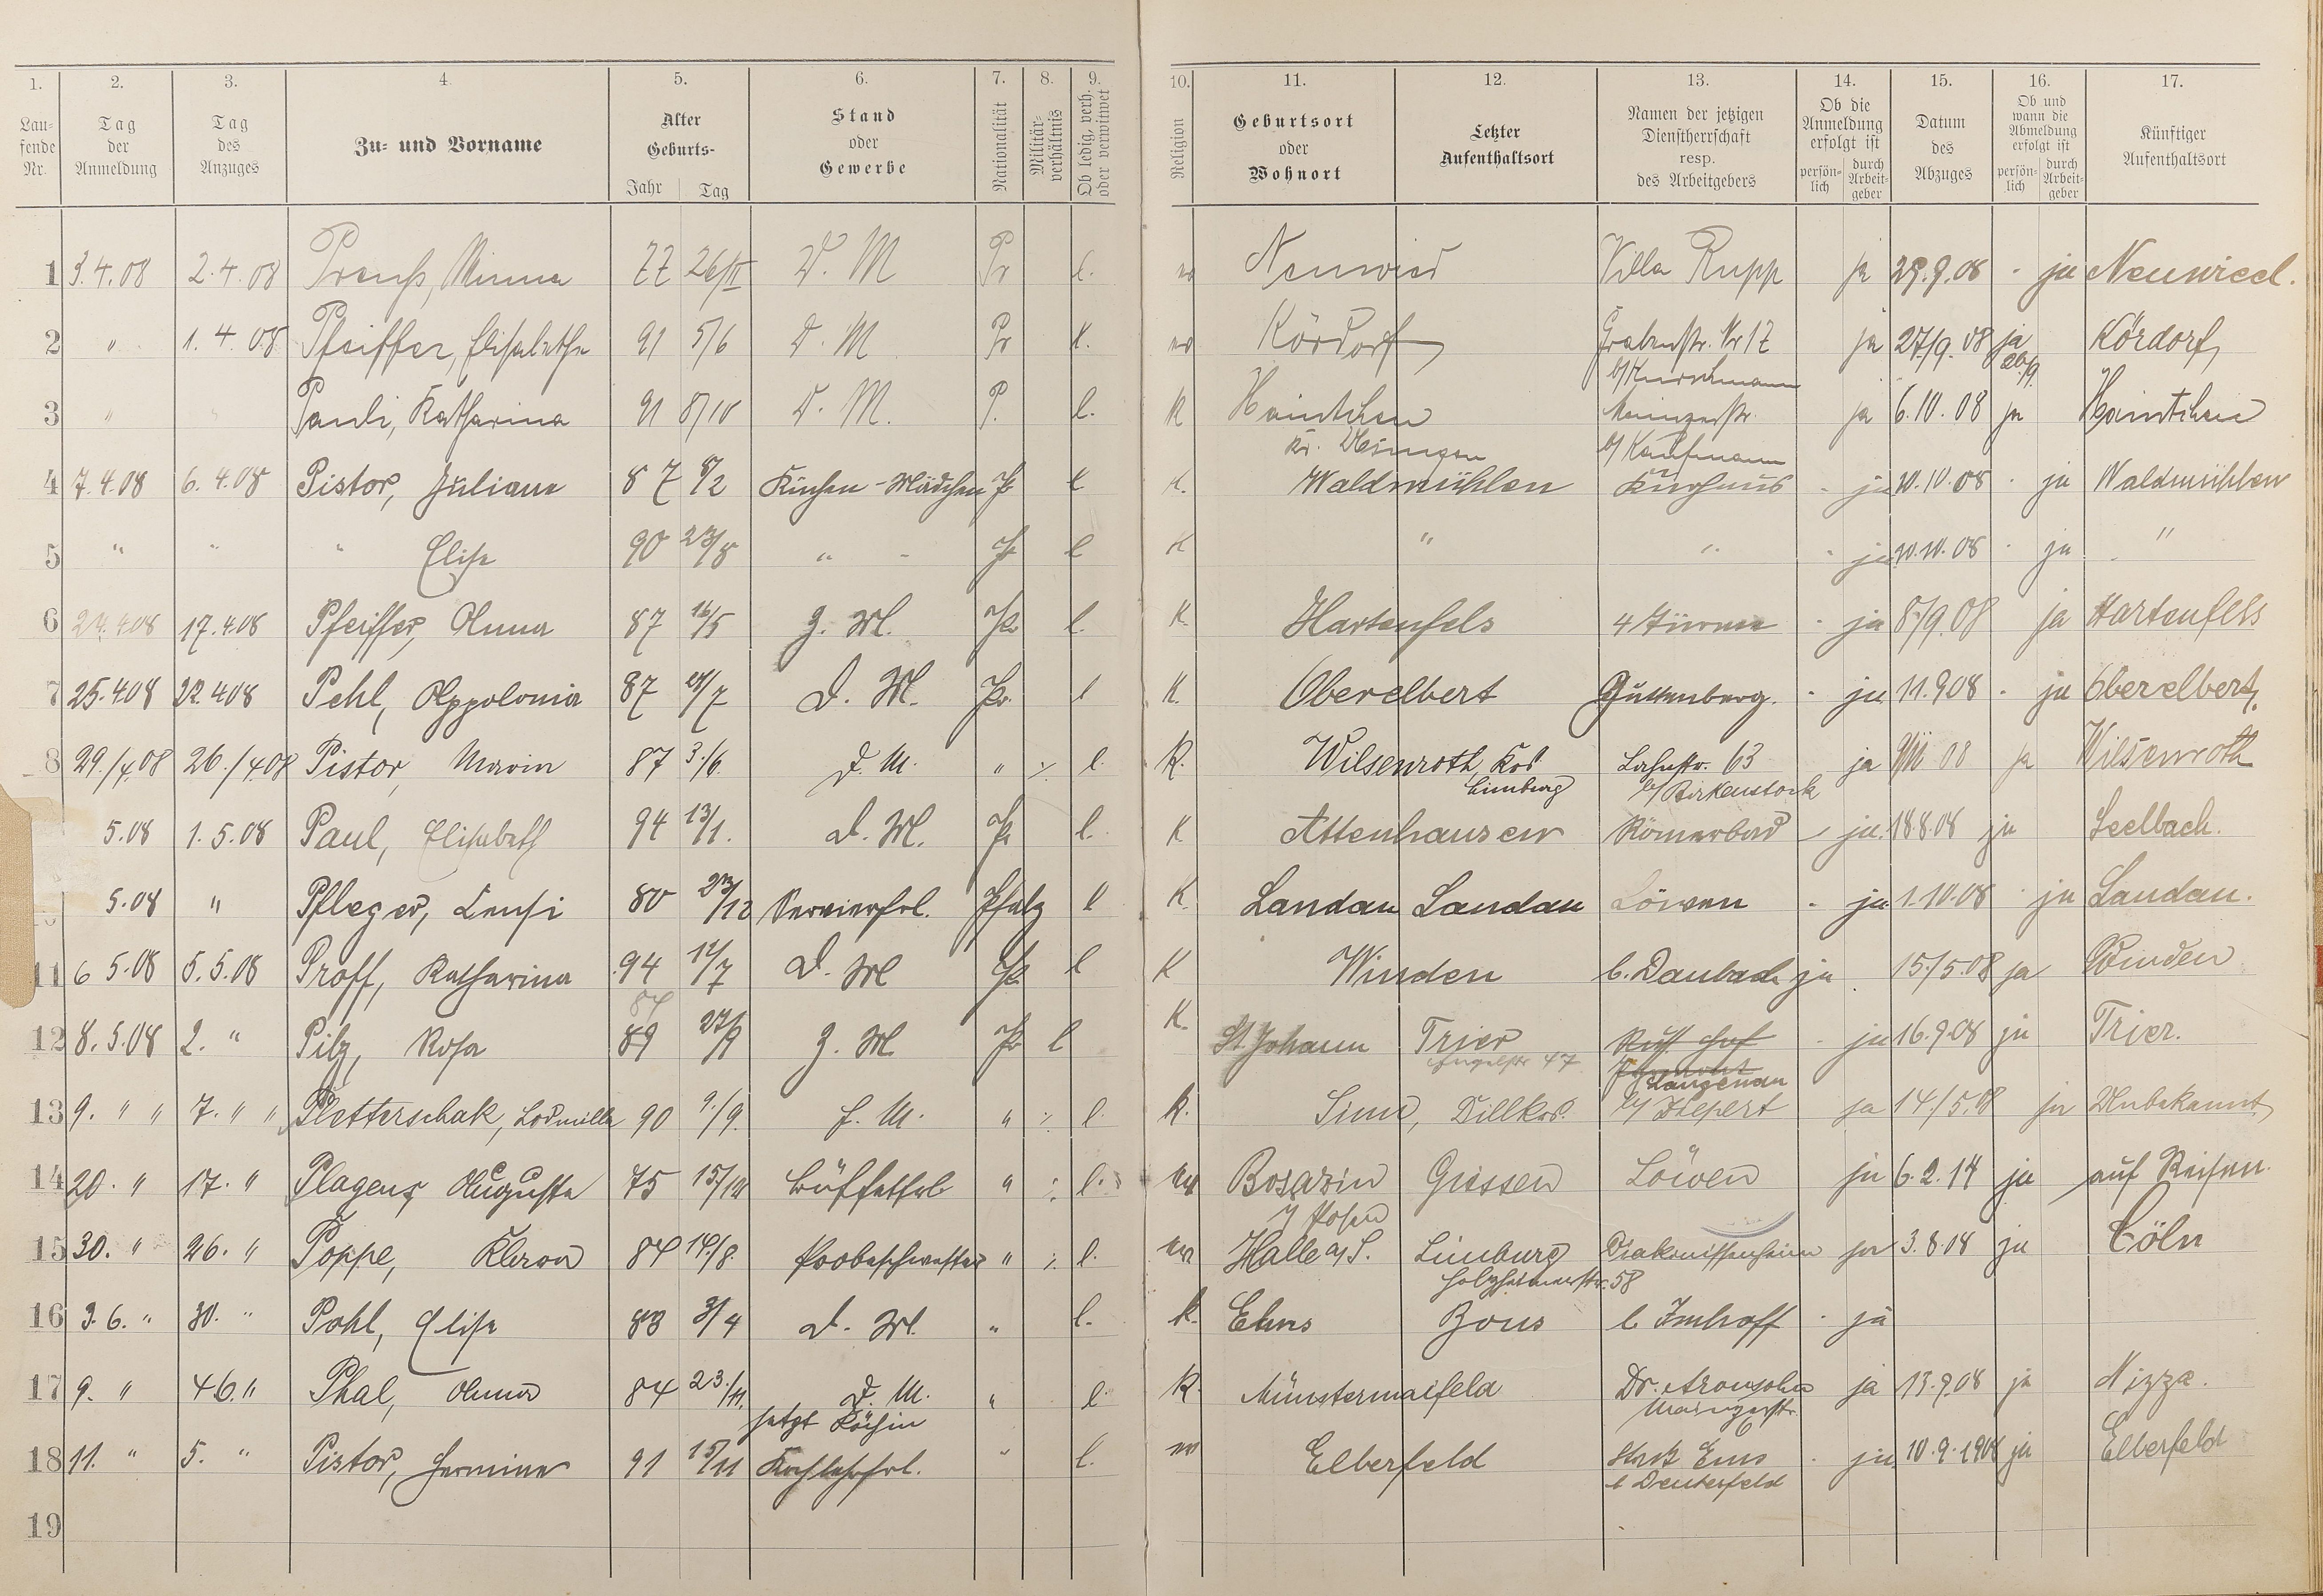 1. 2. 3. 4. 5. 6. 7. 8. 9. 10. 11. 12. 13. 14. 15. 16. 17.
Lau- fende Nr. Tag der Anmeldung Tag des Anzuges Zu- und Vorname Alter Geburts- Jahr Tag Stand oder Gewerbe Nationalität Militär- verhältnis Ob ledig, verh. oder verwitwet Religion Geburtsort oder Wohnort Letzter Aufenthaltsort Namen der jetzigen Dienstherrschaft resp. des Arbeitgebers Ob die Anmeldung erfolgt ist persön- lich durch Arbeit- geber Datum des Abzuges Ob und wann die Abmeldung erfolgt ist persön- lich durch Arbeit- geber Künftiger Aufenthaltsort
1 3.4.08 2.4.08 Preuß, Minna 77 26/II D. M Pr l. Neuwied Villa Rupp ja 29.9.08 - ja Neuwied.
2 " 1.4.08 Pfeiffer, Elisabethe 91 5/6 D. M Pr Kördorf Grabenstr. Nr 17 ja 27/9.08 ja Kördorf
3 " Pauli, Katharina 91 8/10 D. M. P. l. K Haintchen Mainzerstr. ja 6.10.08 ja Haintchen
Kr. Usingen b/ Kaufmann
4 7.4.08 6.4.08 Pistor, Juliane 87 8/2 Küchen-Mädchen Pr l K. Waldmühlen Kurhaus - ja 10.10.08 - ja Waldmühlen
5 " " " Elise 90 23/8 " - Pr l K " " - ja 10.10.08 - ja "
6 17.4.08 Pfeiffer, Anna 87 16/5 Z. M. Pr l. K. Hartenfels 4 Türme - ja 8/9.08 ja Hartenfels
7 25.4.08 22.4.08 Pehl, Appolonia 87 D. M. Pr. l K. Oberelbert Guttenberg. - ja 11.9.08 - ja Oberelbert.
8 29./4.08 26./4.08 Pistor, Maria 87 3./6. D. M. " ./. l. K. Wilsenroth, Krs. Lahnstr. 63 ja 08 ja Wilsenroth
Limburg b/ Birkenstock
5.08 1.5.08 Paul, Elisabeth 94 13/1. D. M. Pr l. K Attenhausen Römerbad - ja. 18.8.08 ja Seelbach.
5.08 " Pfleger, Sensi 80 23/12 Servierfrl. Pfalz l K. Landau Landau Löwen - ja 1.10.08 - ja Landau.
11 6 5.08 5.5.08 Proff, Katharina 94 12/7 D. M Pr l K Winden b. Daubach ja 15./5.08 ja Winden
87
12 8.5.08 2. " Pilz, Rosa 89 27/9 Z. M. Pr l K. St. Johann Trier Russ. Hof - ja 16.9.08 ja Trier.
Engelstr 47 Langenau
13 9. " " 7. " " Pletterschak, Lodmilla 90 9./9. D. M. " ./. l. K. Sinn, Dillkrs. b/ Hepert ja 14./5.08 ja Unbekannt
14 20. " 17. " Plagens, Auguste 75 15/12 Büffetfrl " ./. l. Giessen Löwen ja 6.2.14 ja auf Reisen.
Posen
15 30. " 26. " Poppe, Klara 84 14./8. Probeschwester " ./. l. Halle a/S. Limburg Diakonissenheim ja 3.8.08 ja Cöln
Holzheimerstr. 58
16 3.6. " 30. " Pohl, Elise 88 3/4 D. M. " l. k. Ems Bous b Imhoff - ja
17 9. " 4.6. " Phal, Anna 84 23./11. D. M. " l. K. Münstermaifeld Dr. Aronsohn ja 13.9.08 ja Nizza.
jetzt Köchin Mainzerstr.
18 11. " 5. " Pistor, Hermine 91 15/11 Kochlehrfrl. " l. Elberfeld Stadt Ems - ja 10.9.1908 ja Elberfeld
b Deuterfeld
19